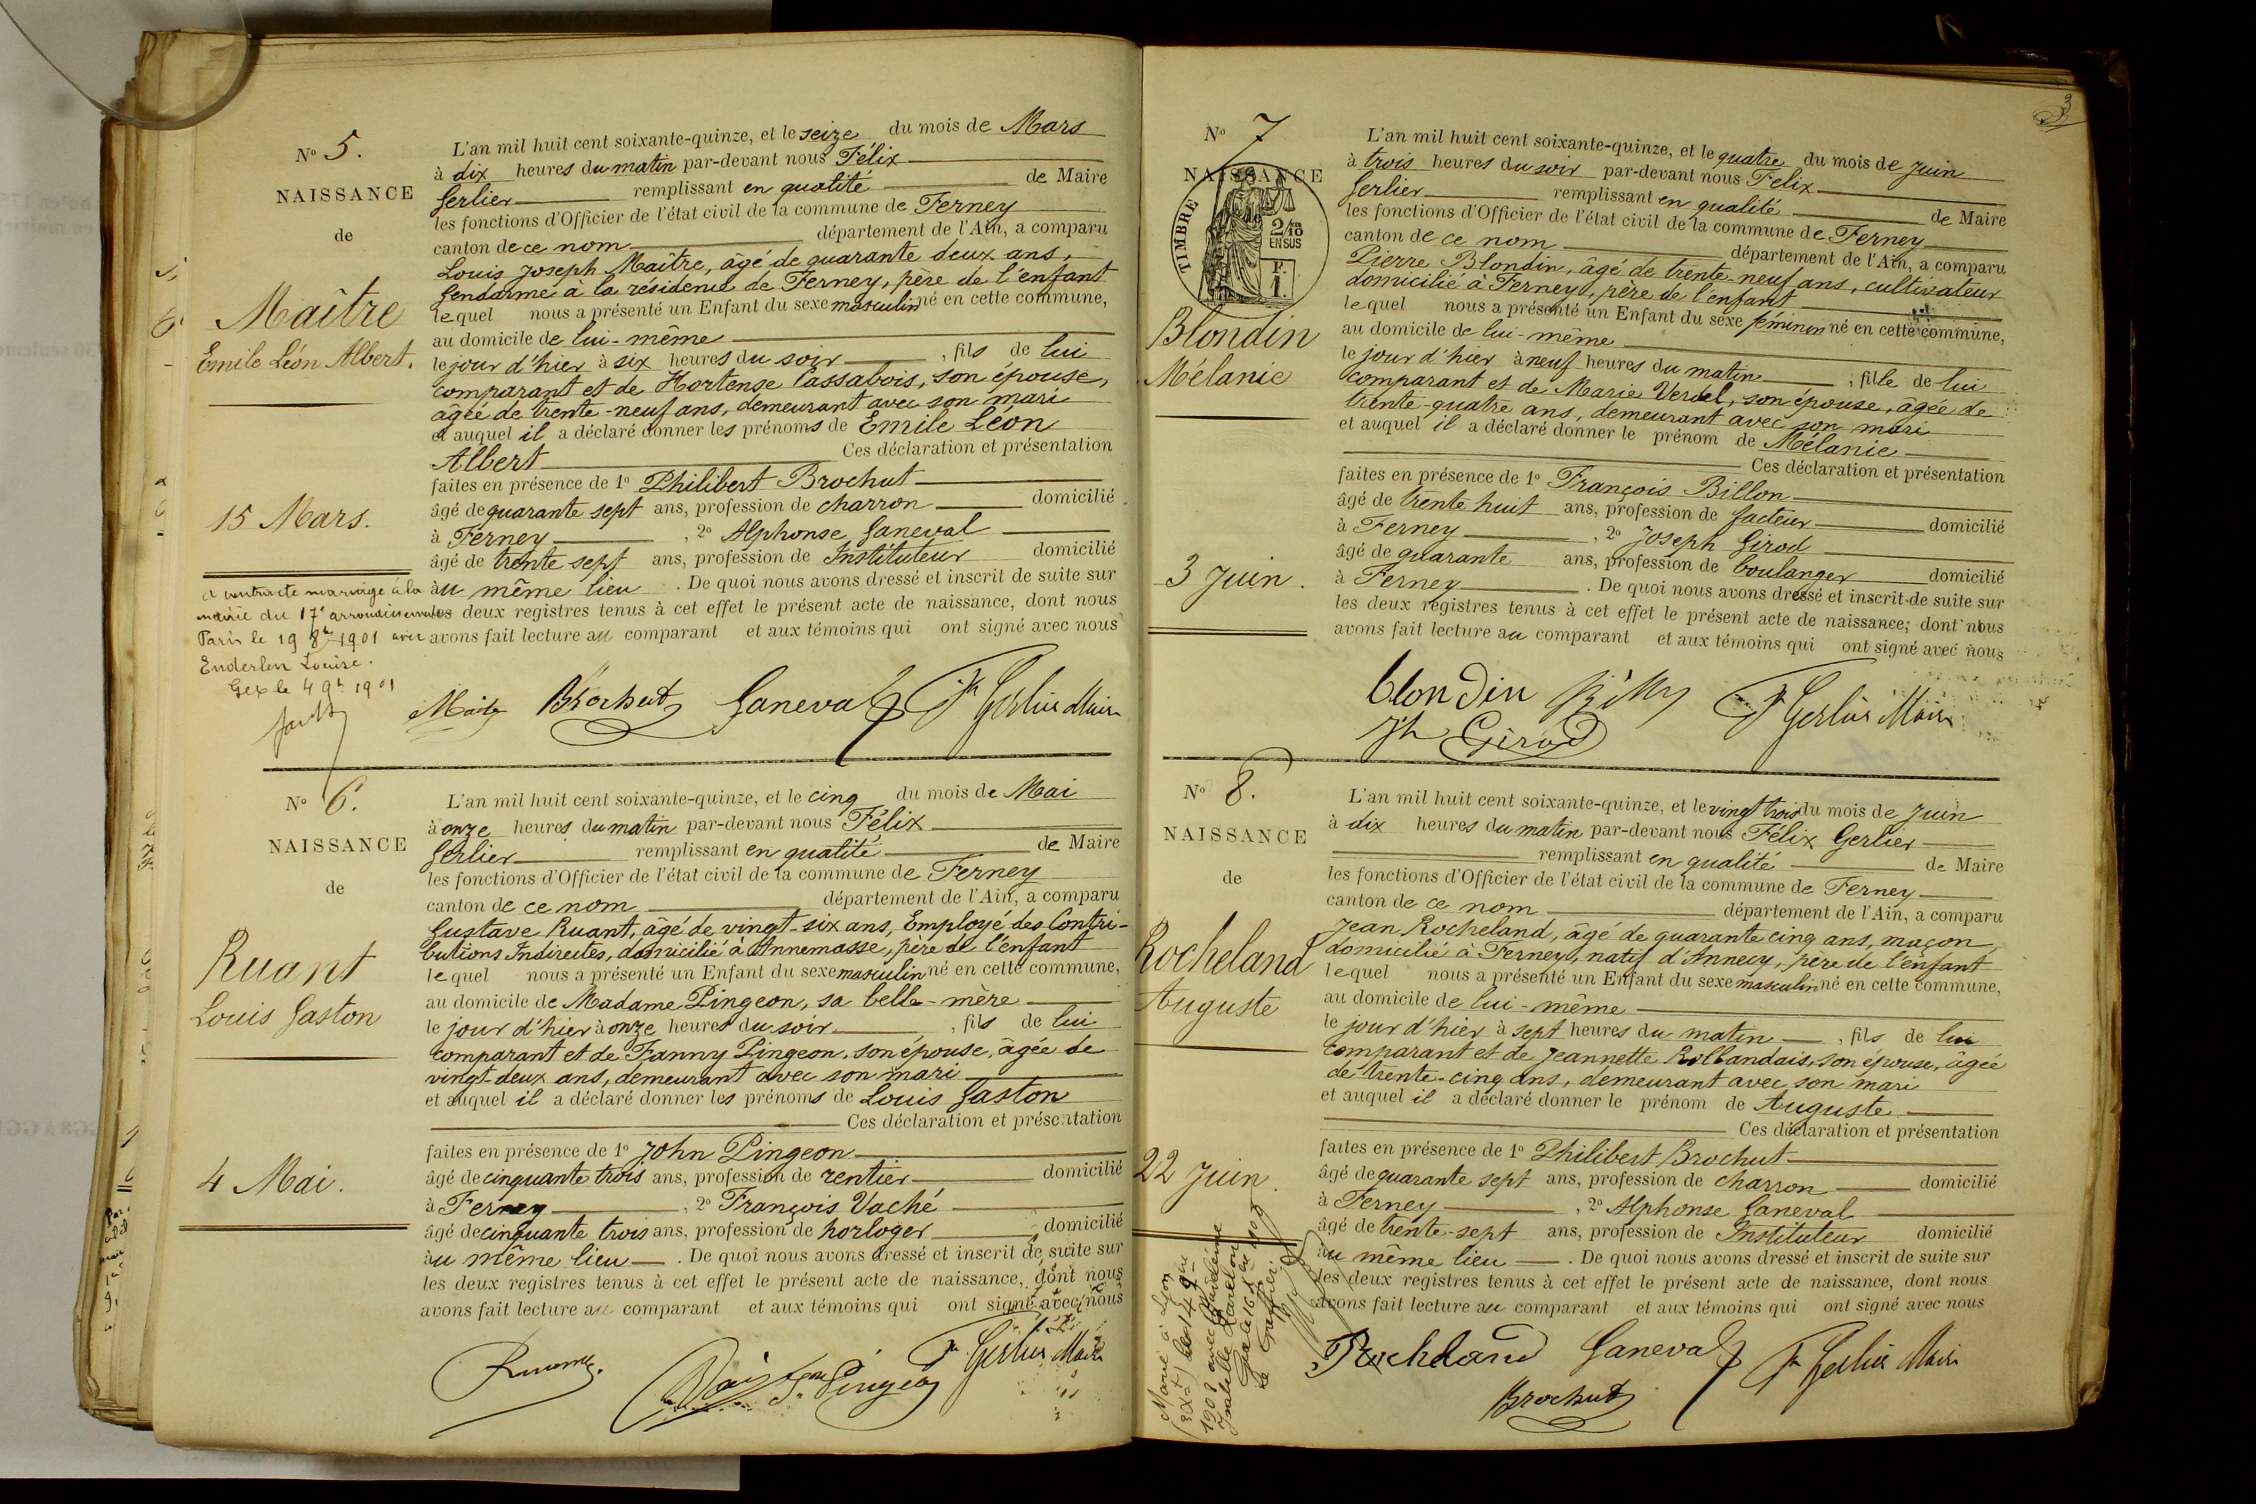 N° 5.
NAISSANCE
de
Maître
Emile Léon Albert.
15 Mars.
a contracté mariage à la
mairie du 17e arrondissement
Paris le 19 8bre 1901 avec
Enderlen Louise.
Gex le 4 9bre 1901
L'an mil huit cent soixante-quinze, et le seize du mois de Mars
à dix heures du matin par-devant nous Félix
Gerlier remplissant en qualité de Maire
les fonctions d'Officier de l'état civil de la commune de Ferney
canton de ce nom département de l'Ain, a comparu
Louis Joseph Maître, âgé de quarante deux ans,
Gendarme à la résidence de Ferney, père de l'enfant
lequel nous a présenté un Enfant du sexe masculin né en cette commune,
au domicile de lui-même
le jour d'hier à six heures du soir, fils de lui
comparant et de Hortense Cassabois, son épouse,
âgée de trente-neuf ans, demeurant avec son mari
et auquel il a déclaré donner les prénoms de Emile Léon
Albert Ces déclaration et présentation
faites en présence de 1° Philibert Brochut
âgé de quarante sept ans, profession de charron domicilié
à Ferney, 2° Alphonse Ganeval
âgé de trente sept ans, profession de Instituteur domicilié
au même lieu. De quoi nous avons dressé et inscrit de suite sur
les deux registres tenus à cet effet le présent acte de naissance, dont nous
avons fait lecture au comparant et aux témoins qui ont signé avec nous
Maître Brochut Ganeval Fx Gerlier Maire
N° 6.
NAISSANCE
de
Ruant
Louis Gaston
4 Mai.
L'an mil huit cent soixante-quinze, et le cinq du mois de Mai
à onze heures du matin par-devant nous Félix
Gerlier remplissant en qualité de Maire
les fonctions d'Officier de l'état civil de la commune de Ferney
canton de ce nom département de l'Ain, a comparu
Gustave Ruant, âgé de vingt-six ans, Employé des Contri-
butions Indirectes, domicilié à Annemasse, père de l'enfant
lequel nous a présenté un Enfant du sexe masculin né en cette commune,
au domicile de Madame Pingeon, sa belle-mère
le jour d'hier à onze heures du soir, fils de lui
comparant et de Fanny Pingeon, son épouse, âgée de
vingt-deux ans, demeurant avec son mari
et auquel il a déclaré donner les prénoms de Louis Gaston
Ces déclaration et présentation
faites en présence de 1° John Pingeon
âgé de cinquante trois ans, profession de rentier domicilié
à Ferney, 2° François Vaché
âgé de cinquante trois ans, profession de horloger domicilié
au même lieu. De quoi nous avons dressé et inscrit de suite sur
les deux registres tenus à cet effet le présent acte de naissance, dont nous
avons fait lecture au comparant et aux témoins qui ont signé avec nous
Pingeon Fx Gerlier Maire
3
N° 7
NAISSANCE
TIMBRE
2/10
EN SUS
Blondin
Mélanie
3 Juin.
L'an mil huit cent soixante-quinze, et le quatre du mois de Juin
à trois heures du soir par-devant nous Félix
Gerlier remplissant en qualité de Maire
les fonctions d'Officier de l'état civil de la commune de Ferney
canton de ce nom département de l'Ain, a comparu
Pierre Blondin, âgé de trente-neuf ans, cultivateur
domicilié à Ferney, père de l'enfant
lequel nous a présenté un Enfant du sexe féminin né en cette commune,
au domicile de lui-même
le jour d'hier à neuf heures du matin, fille de lui
comparant et de Marie Verdel, son épouse, âgée de
trente-quatre ans, demeurant avec son mari
et auquel il a déclaré donner le prénom de Mélanie
Ces déclaration et présentation
faites en présence de 1° François Billon
âgé de trente huit ans, profession de facteur domicilié
à Ferney, 2° Joseph Girod
âgé de quarante ans, profession de boulanger domicilié
à Ferney. De quoi nous avons dressé et inscrit de suite sur
les deux registres tenus à cet effet le présent acte de naissance; dont nous
avons fait lecture au comparant et aux témoins qui ont signé avec nous
blondin Fx Gerlier Maire
Jh Girod
N° 8.
NAISSANCE
de
Rocheland
Auguste
22 Juin.
L'an mil huit cent soixante-quinze, et le vingt trois du mois de Juin
à dix heures du matin par-devant nous Félix Gerlier
remplissant en qualité de Maire
les fonctions d'Officier de l'état civil de la commune de Ferney
canton de ce nom département de l'Ain, a comparu
Jean Rocheland, âgé de quarante cinq ans, maçon
domicilié à Ferney, natif d'Annecy, père de l'enfant
lequel nous a présenté un Enfant du sexe masculin né en cette commune,
au domicile de lui-même
le jour d'hier à sept heures du matin, fils de lui
comparant et de Jeannette Rollandais, son épouse, âgée
de trente-cinq ans, demeurant avec son mari
et auquel il a déclaré donner le prénom de Auguste
Ces déclaration et présentation
faites en présence de 1° Philibert Brochut
âgé de quarante sept ans, profession de charron domicilié
à Ferney, 2° Alphonse Ganeval
âgé de trente-sept ans, profession de Instituteur domicilié
au même lieu. De quoi nous avons dressé et inscrit de suite sur
les deux registres tenus à cet effet le présent acte de naissance, dont nous
avons fait lecture au comparant et aux témoins qui ont signé avec nous
Rocheland Ganeval Fx Gerlier Maire
Brochut
Marié à Lyon